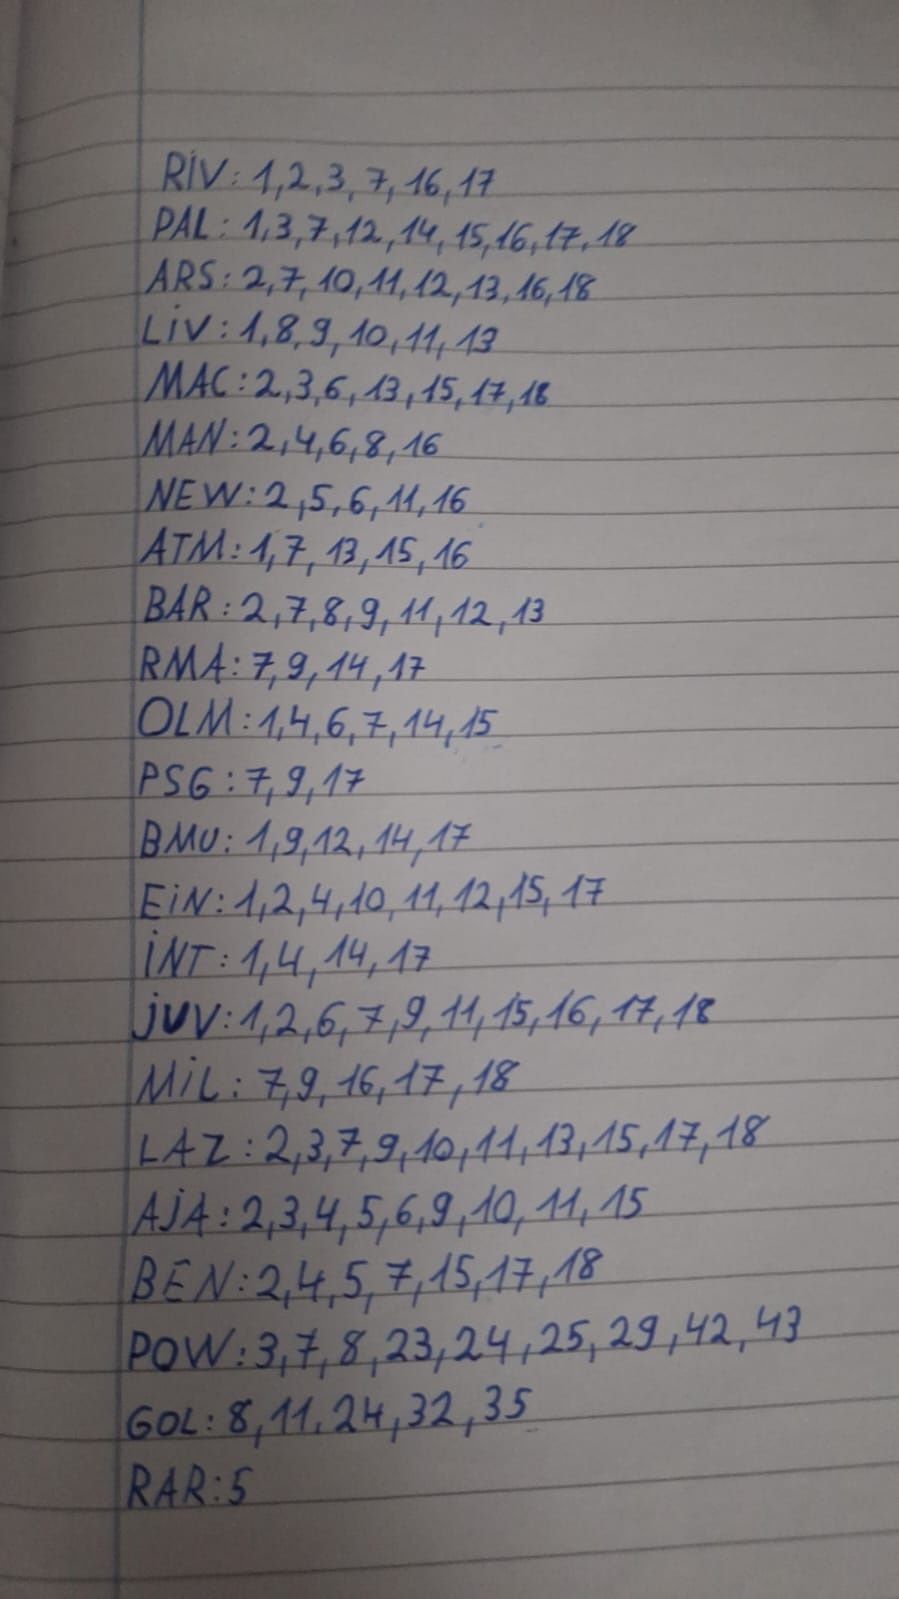 RiV: 1,2,3,7,16,17
PAL: 1,3,7,12,14,15,16,17,18
ARS: 2,7,10,11,12,13,16,18
LiV: 1,8,9,10,11,13
MAC: 2,3,6,13,15,17,18
MAN: 2,4,6,8,16
NEW: 2,5,6,11,16
ATM: 1,7,13,15,16
BAR: 2,7,8,9,11,12,13
RMA: 7,9,14,17
OLM: 1,4,6,7,14,15
PSG: 7,9,17
BMU: 1,9,12,14,17
EiN: 1,2,4,10,11,12,15,17
iNT: 1,4,14,17
jUV: 1,2,6,7,9,11,15,16,17,18
MiL: 7,9,16,17,18
LAZ: 2,3,7,9,10,11,13,15,17,18
AjA: 2,3,4,5,6,9,10,11,15
BEN: 2,4,5,7,15,17,18
POW: 3,7,8,23,24,25,29,42,43
GOL: 8,11.24,32,35
RAR: 5